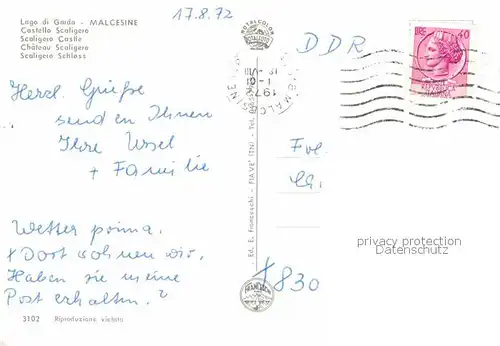 Lago di Garda - MALCESINE
Castello Scaligero
Scaligero Castle
Château Scaligero
Scaligero Schloss
17.8.72
ROTALCOLOR
DDR
LIRE 40
REPUBBLICA
ITALIANA
MALCESINE
Herzl. Grüße
senden Ihnen
Ihre Ursel
+ Familie
Wetter prima.
x Dort wohnen wir.
Haben sie meine
Post erhalten?
Ed. E. Franceschi - PIAVE
privacy protection
Datenschutz
x 830
3102 Riproduzione vietata